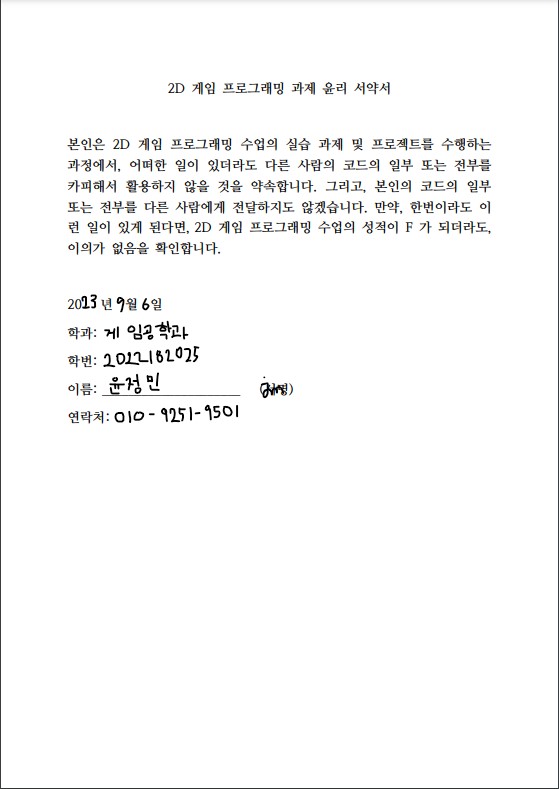 2D 게임 프로그래밍 과제 윤리 서약서
본인은 2D 게임 프로그래밍 수업의 실습 과제 및 프로젝트를 수행하는
과정에서, 어떠한 일이 있더라도 다른 사람의 코드의 일부 또는 전부를
카피해서 활용하지 않을 것을 약속합니다. 그리고, 본인의 코드의 일부
또는 전부를 다른 사람에게 전달하지도 않겠습니다. 만약, 한번이라도 이
런 일이 있게 된다면, 2D 게임 프로그래밍 수업의 성적이 F 가 되더라도,
이의가 없음을 확인합니다.
2023 년 9월 6일
학과: 게임공학과
학번: 2022182025
이름: 윤정민 (서명)
연락처: 010-9251-9501